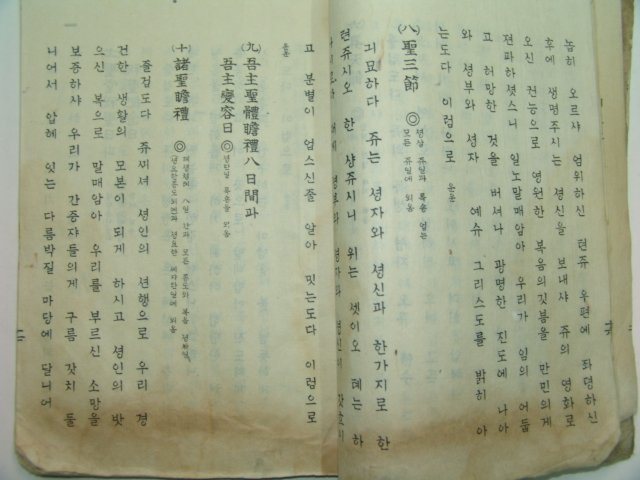 놉히 오르샤 엄위하신 텬쥬 우편에 좌뎡하신
후에 생명주시는 셩신을 보내샤 쥬의 영화로
오신 권능으로 영원한 복음의깃븜을 만민의게
젼파하셧스니 일노말매암아 우리가 임의 어둡
고 허망한 것을 버셔나 광명한 진도에 나아
와 셩부와 셩자 예슈 그리스도를 밝히 아
는도다 이럼으로 운운
(八)聖三節 ◎ 모든 쥬일에 외움
긔묘하다 쥬는 셩자와 셩신과 한가지로 한
텬쥬시오 한 샹쥬시니 위는 셋이오 톄는 하
고 분별이 업스신줄 알아 밋는도다 이럼으로
운운
(九)吾主聖體瞻禮八日間과
吾主變容日 ◎ 셩탄일 톡용을 외움
(十)諸聖瞻禮 ◎
즐겁도다 쥬씨셔 셩인의 션행으로 우리 경
건한 생활의 모본이 되게 하시고 셩인의 밧
으신 복으로 말매암아 우리를 부르신 소망을
보증하샤 우리가 간증쟈들의게 구름 갓치 둘
니어서 압헤 잇는 다름박질 마당에 달니어